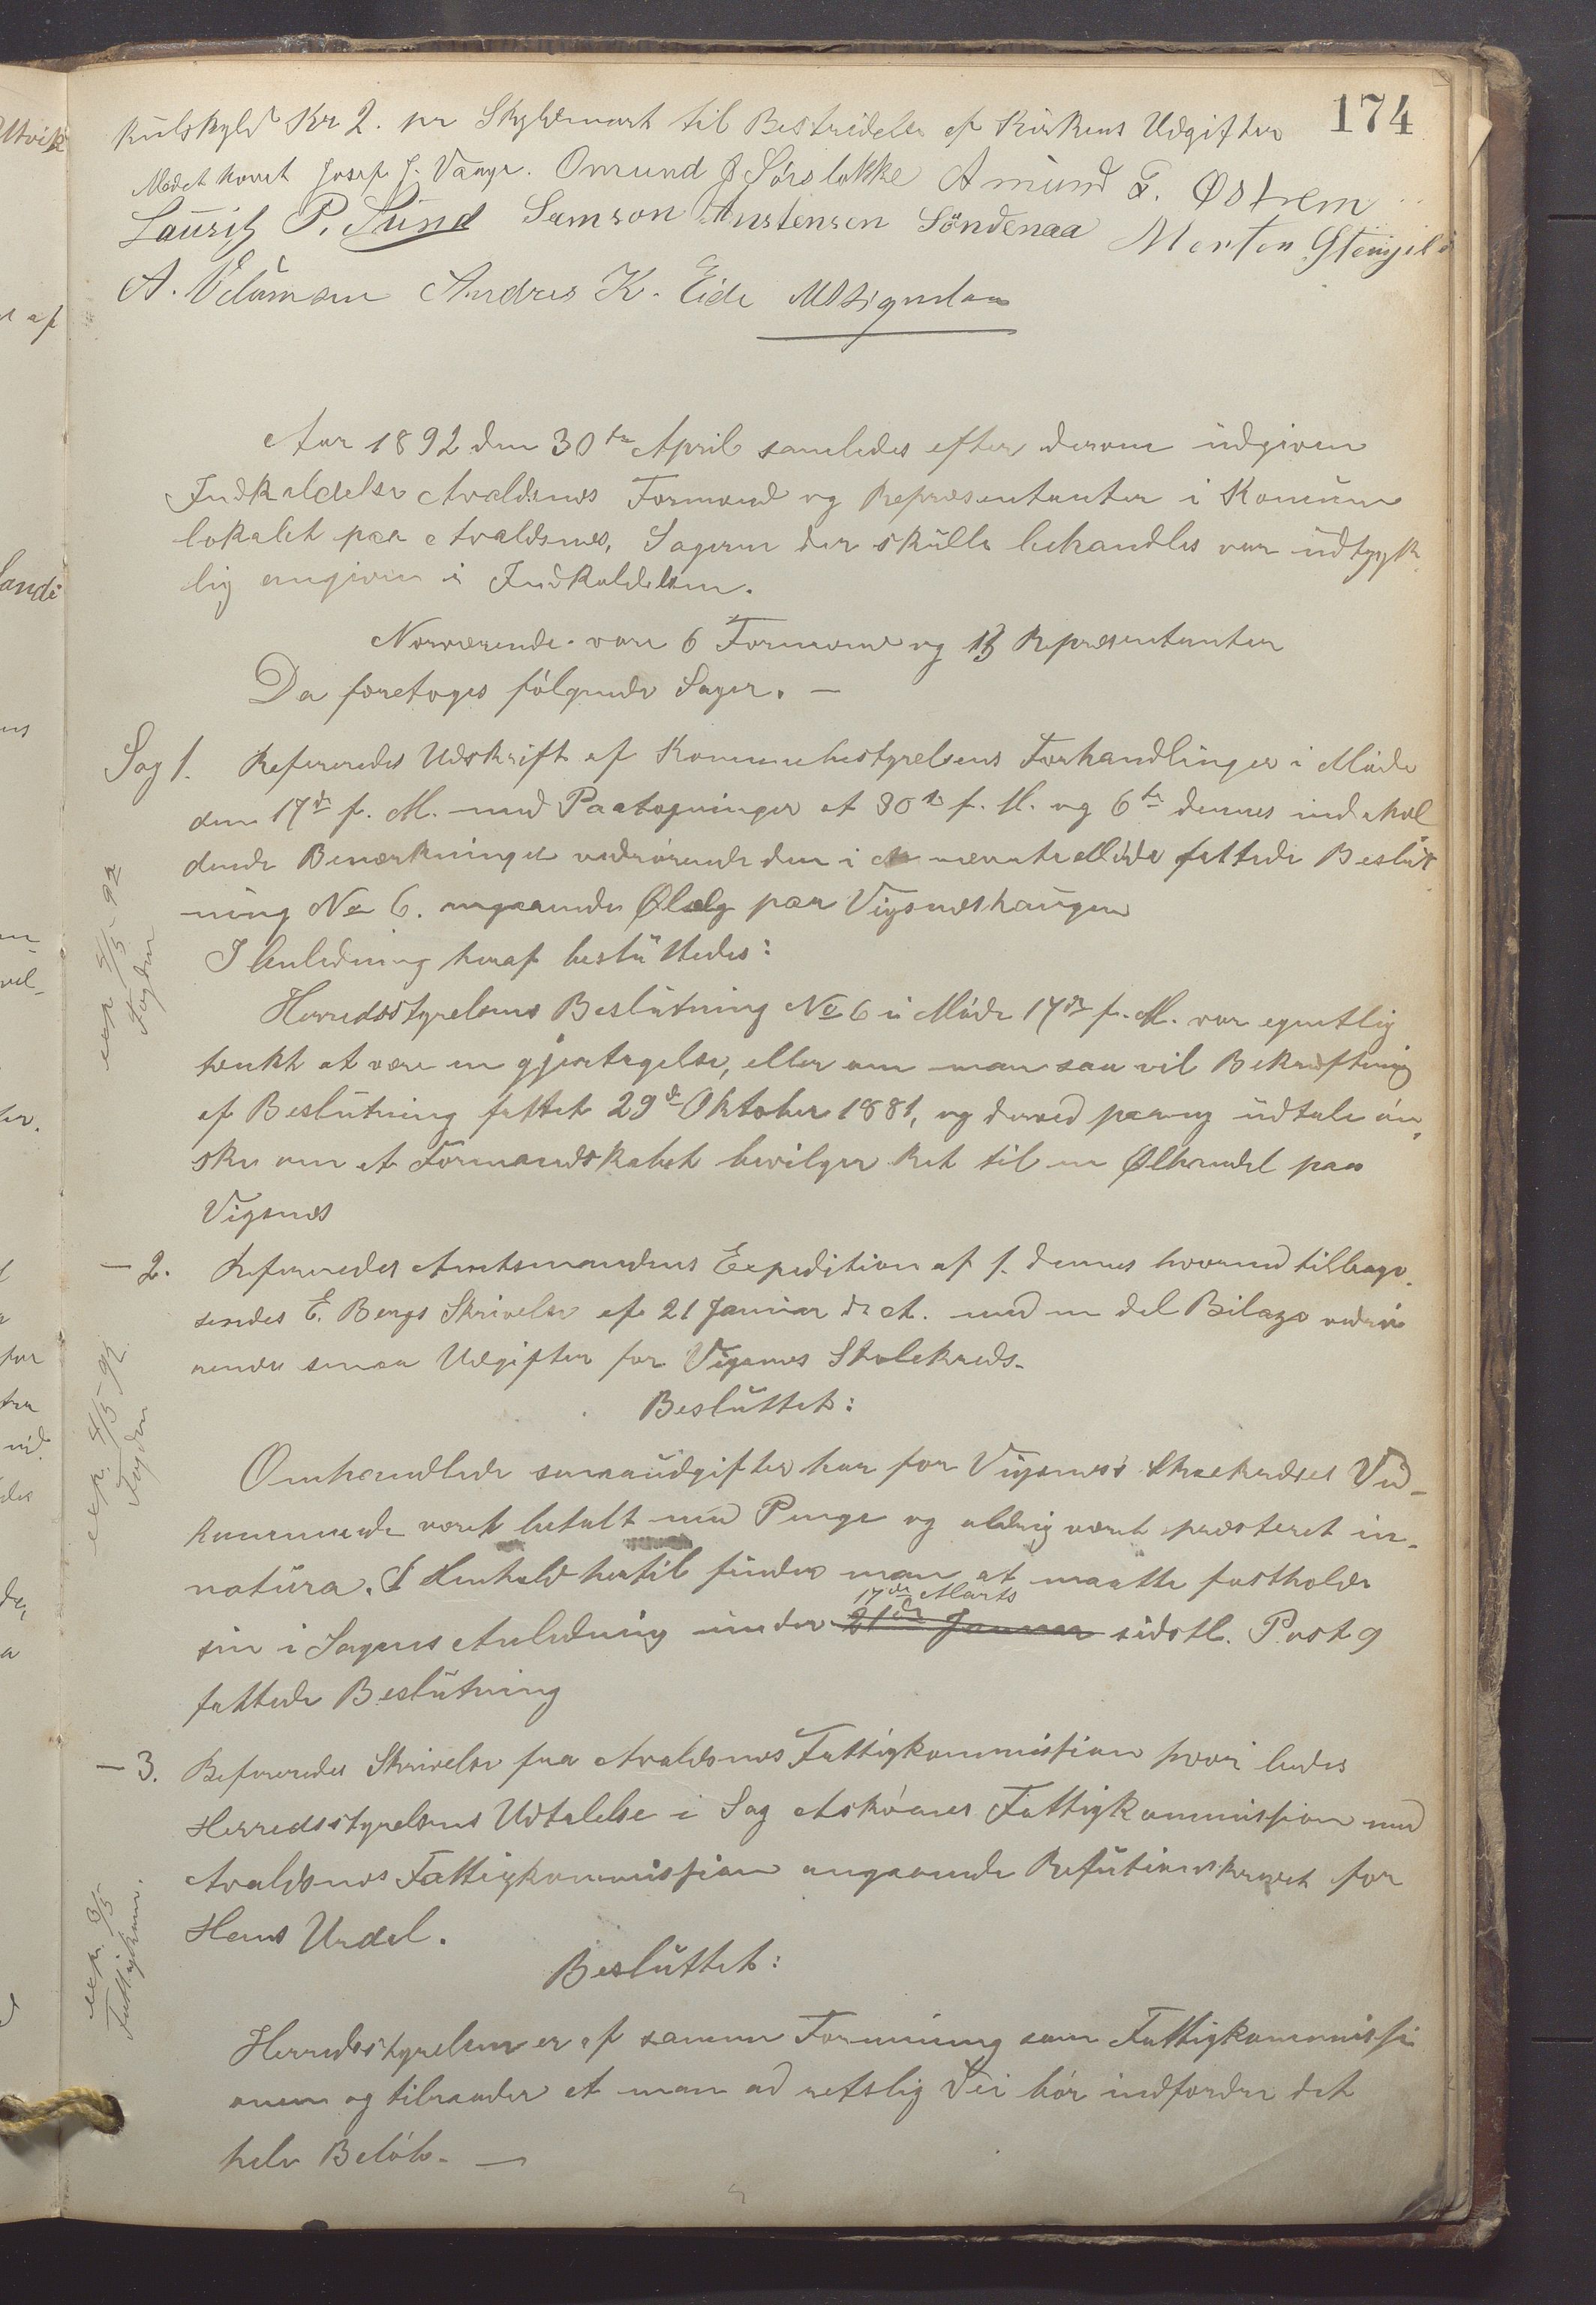 174
kulskyld Kr 2. pr Skyldmark til Bestridelse af Kirkens Udgifter
Mødet hævet Josef J. Vaage. Omund J Sörslokke Amund T. Østrem
Lauritz P. Sund Samson Austensen Söndenaa Morten
A. Andres K. Eide
Aar 1892 den 30te April samledes efter derom udgiven
Indkaldelse Avaldsnes Formænd og Repræsentanter i Komune
lokalet paa Avaldsnes, Sagerne der skulle behandles var udtryk
lig angiven i Indkaldelsen.
Nærværende vare 6 Formænd og 13 Repræsentanter
Da foretoges fölgende Sager. —
Sag 1. Refereredes Udskrift af Kommunebestyrelsens Forhandlinger i Möde
den 17de f. M. med Paategninger af 30te f. M. og 6te dennes indehol
dende Bemærkninger vedrörende den i nævnte Möde fattede Beslut
ning No 6. angaaende Ølsalg paa Vigsnæshaugen
I Anledning heraf besluttedes:
Herredsstyrelsens Beslutning No 6 i Möde 17de f. M. var egentlig
tænkt at være en gjentagelse, eller om man saa vil Bekræftning
af Beslutning fattet 29de Oktober 1881, og derved paany udtale ön
ske om at Formandskabet bevilger Ret til en Ølhandel paa
Vigsnæs
exp 4/5-92
Fogden
— 2. Refereredes Amtsmandens Expedition af 1. dennes hvormed tilbage
sendes E. Bergs Skrivelse af 21 Januar d. A. med en del Bilage vedrö
rende smaa Udgifter for Vigsnes Skolekreds.
Besluttet:
Omhandlede smaaudgifter har for Vigsnes's Skolekredses Ved-
kommende været betalt med Penge og aldrig været præsteret in-
natura. I Henhold hertil finder man at maatte fastholde
17de Marts
sin i Sagens Anledning under 21de Januar sidstl. Post 9
fattede Beslutning
exp. 4/5-92
Fogden
— 3. Refereredes Skrivelse fra Avaldsnes Fattigkommission hvori bedes
Herredsstyrelsens Udtalelse i Sag Askøens Fattigkommission mod
Avaldsnes Fattigkommission angaaende Refusionskravet for
Hans Urdal.
Besluttet:
Herredsstyrelsen er af samme Formening som Fattigkommissi
onen og tilraader at man ad retslig Vei bör indfordre det
hele Belöb. —
exp. 3/5
Fattigkom.